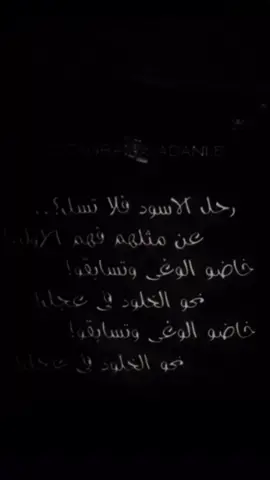 رحل الاسود فلا تسل؟..
عن مثلهم فهم الاول!
خاضو الوغى وتسابقو!
نحو الخلود في عجل!
خاضو الوغى وتسابقو!
نحو الخلود في عجل!